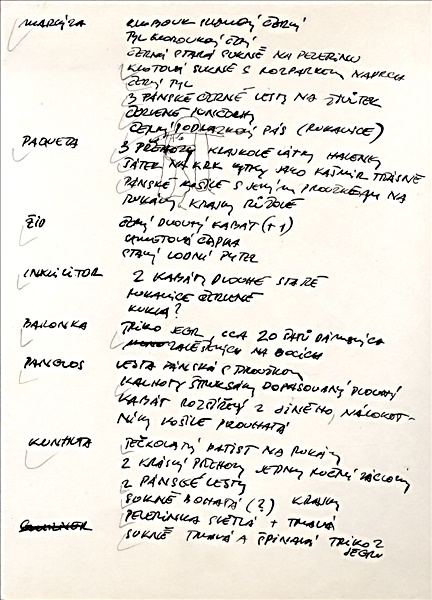 MARKÝZA KLOBOUK SLAMĚNÝ ČERNÝ
TYL ČERNÝ
ČERNÁ STARÁ SUKNĚ NA PELERÍNU
KLOTOVÁ SUKNĚ S ROZPARKEM NAPRED
ČERNÝ TYL
3 PÁNSKÉ ČERNÉ VESTY NA ŽIVŮTEK
ČERVENÉ PUNČOCHY
ČERNÝ PODVAZKOVÝ PÁS (RUKAVICE)
PAQUETA 3 PŘEHOZY KRAJKOVÉ LÁTKY HALENKY
ŠÁTEK NA KRK JAKO KAŠMÍR TŘÁSNĚ
PÁNSKÉ KOŠILE S JEMNÝM PROUŽKEM NA
RUKÁVY, KRAJKY RŮŽOVÉ
ŽID ČERNÝ DLOUHÝ KABÁT (+1)
SAMETOVÁ ČAPKA
STARÝ LODNÍ PYTEL
INKVIZITOR 2 KABÁTY DLOUHÉ STARÉ
RUKAVICE ČERVENÉ
KUKLA?
BARONKA TRIKO JEGR, CCA 20 ŠATŮ DÁMSKÝCH
NA BOCÍCH
PANGLOS VESTA PÁNSKÁ S PROUŽKEM
KALHOTY ŠTRUKSÁKY DOPASOVANÝ DLOUHÝ
KABÁT ROZŠÍŘENÝ Z JINÉHO, NÁLOKET-
NÍKY KOŠILE PROUHATÁ
KUNHUTA TEČKOVATÝ BATIST NA RUKÁVY
2 KRÁSNÝ PŘEHOZY JEDNY ROČNÝ ZÁCLONY
2 PÁNSKÉ VESTY
SUKNĚ BOHATÁ (?) KRAJKY
PELERÍNKA SVĚTLÁ + TMAVÁ
SUKNĚ TMAVÁ A ŠPINAVÁ TRIKO Z
JEGRU